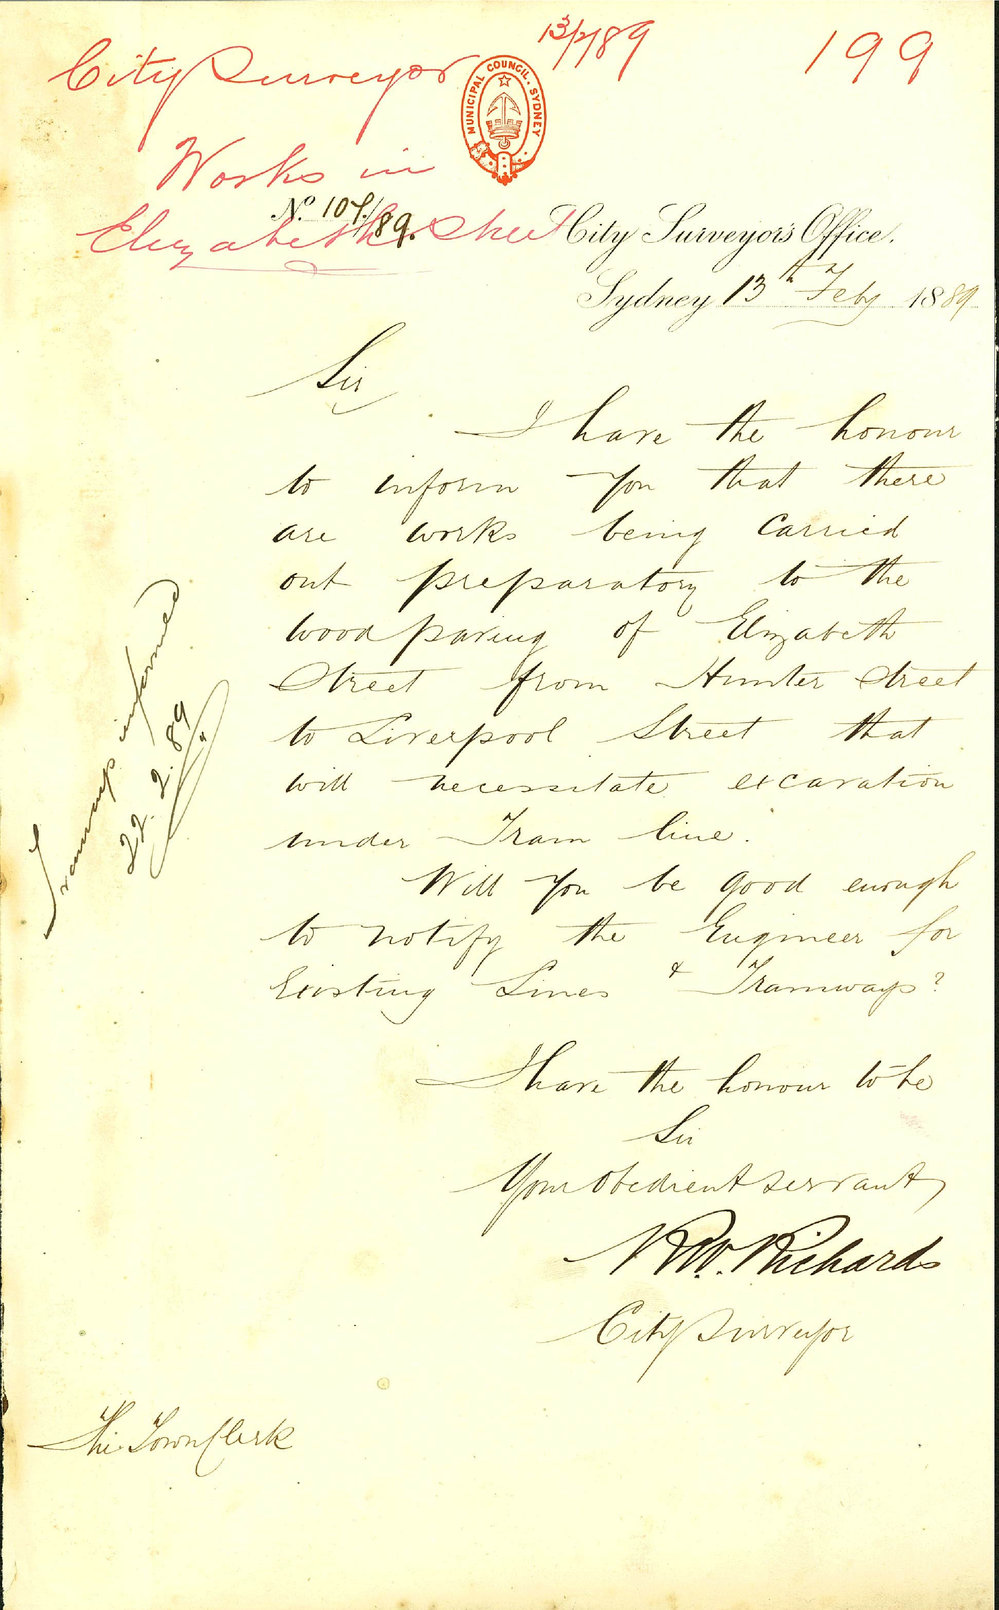 13/2/89
199
City Surveyor
MUNICIPAL COUNCIL. SYDNEY
Works in
Elizabeth Street
No. 107/89.
City Surveyor's Office.
Sydney 13th Feby 1889
Sir
I have the honour
to inform you that there
are works being carried
out preparatory to the
wood paving of Elizabeth
Street from Hunter Street
to Liverpool Street that
will necessitate excavation
under Tram line.
Will you be good enough
to notify the Engineer for
Existing Lines & Tramways?
I have the honour to be
Sir
Your obedient servant,
Richards
City Surveyor
The Town Clerk
Tramways informed
22.2.89